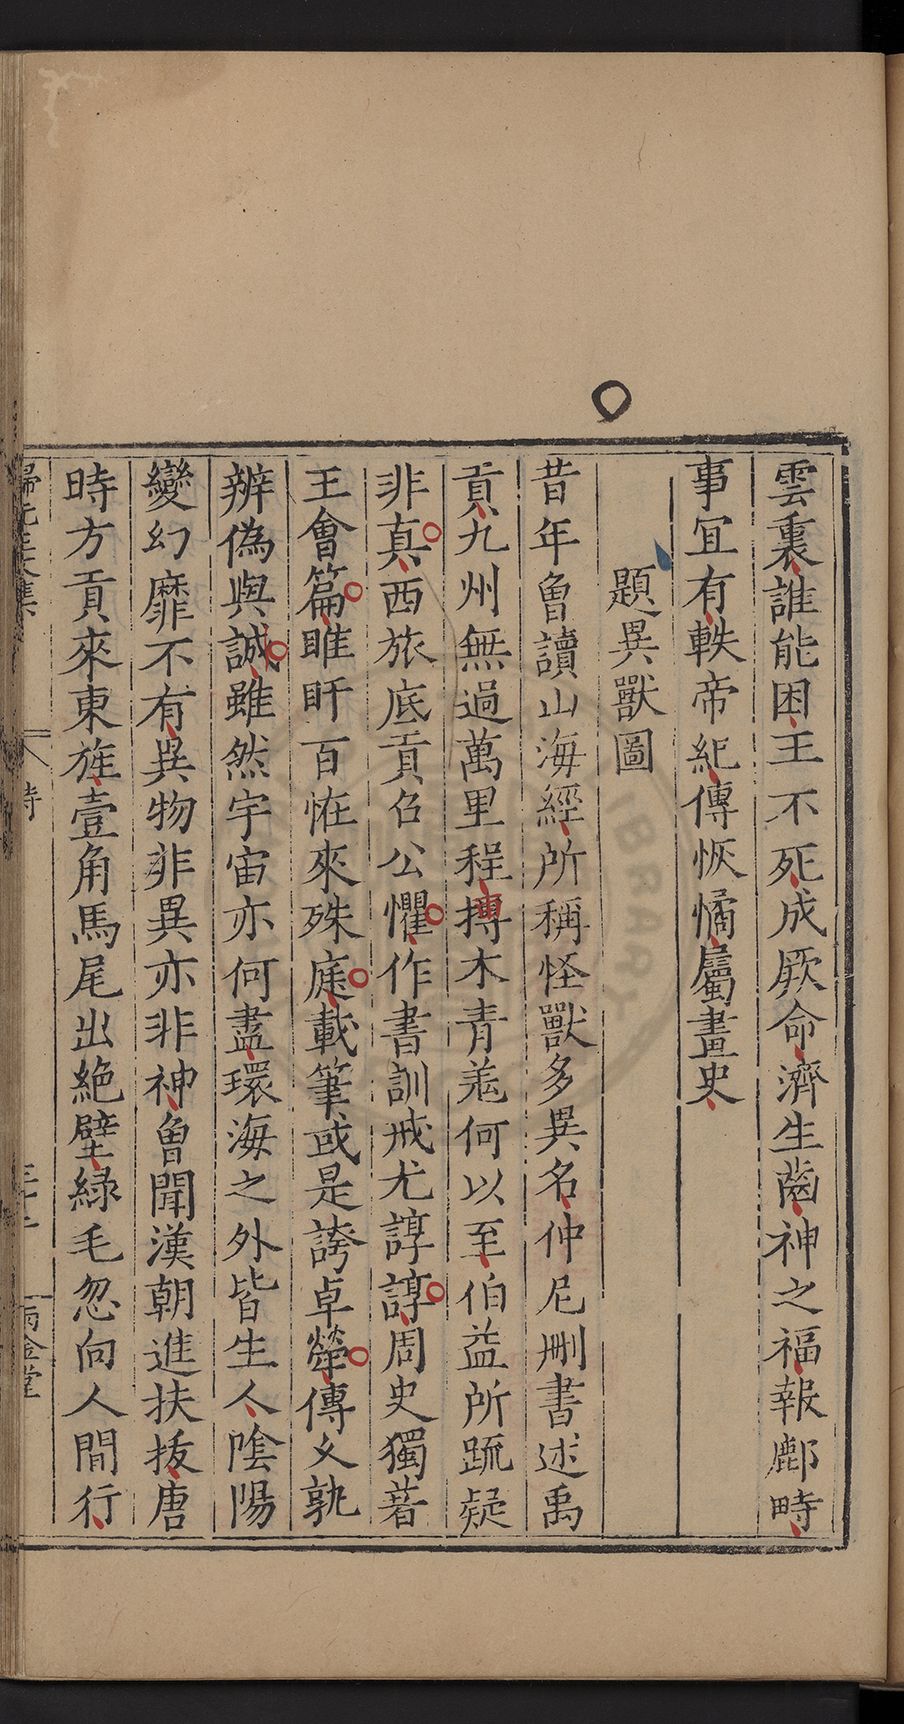 雲裏誰能困王不死成厥命濟生齒神之福報鄜畤
事冝有軼帝紀傳恢憰屬畫史
題異獸圖
昔年曾讀山海經所稱怪獸多異名仲尼刪書述禹
貢九州無過萬里程搏木青羗何以至伯益所疏疑
非真西旅底貢召公懼作書訓戒尤諄諄周史獨著
王會篇睢盱百恠來殊庭載筆或是誇卓犖傳文孰
辨偽與誠雖然宇宙亦何盡環海之外皆生人隂陽
變幻靡不有異物非異亦非神曾聞漢朝進扶拔唐
時方貢來東旌壹角馬尾出絶壁緑毛忽向人間行
詩